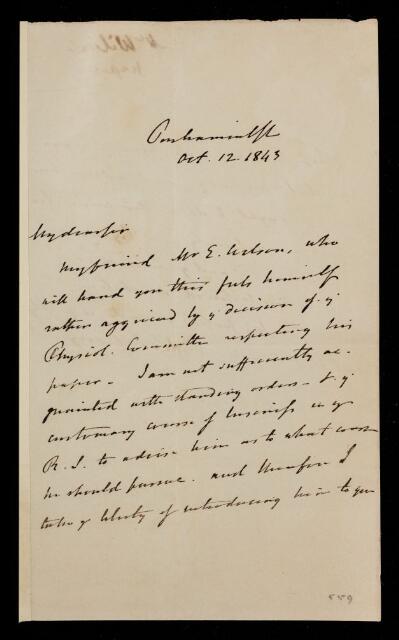 Oct. 12. 1843
My dear Sir
My friend Mr E. Wilson, who
will hand you this feels himself
rather aggrieved by y decision of y
Physiol. Committee respecting his
paper - I am not sufficiently ac-
quainted with standing orders & y
customary course of business in y
R.S. to advise him as to what course
he should pursue. and therefore I
take y liberty of introducing him to you
559